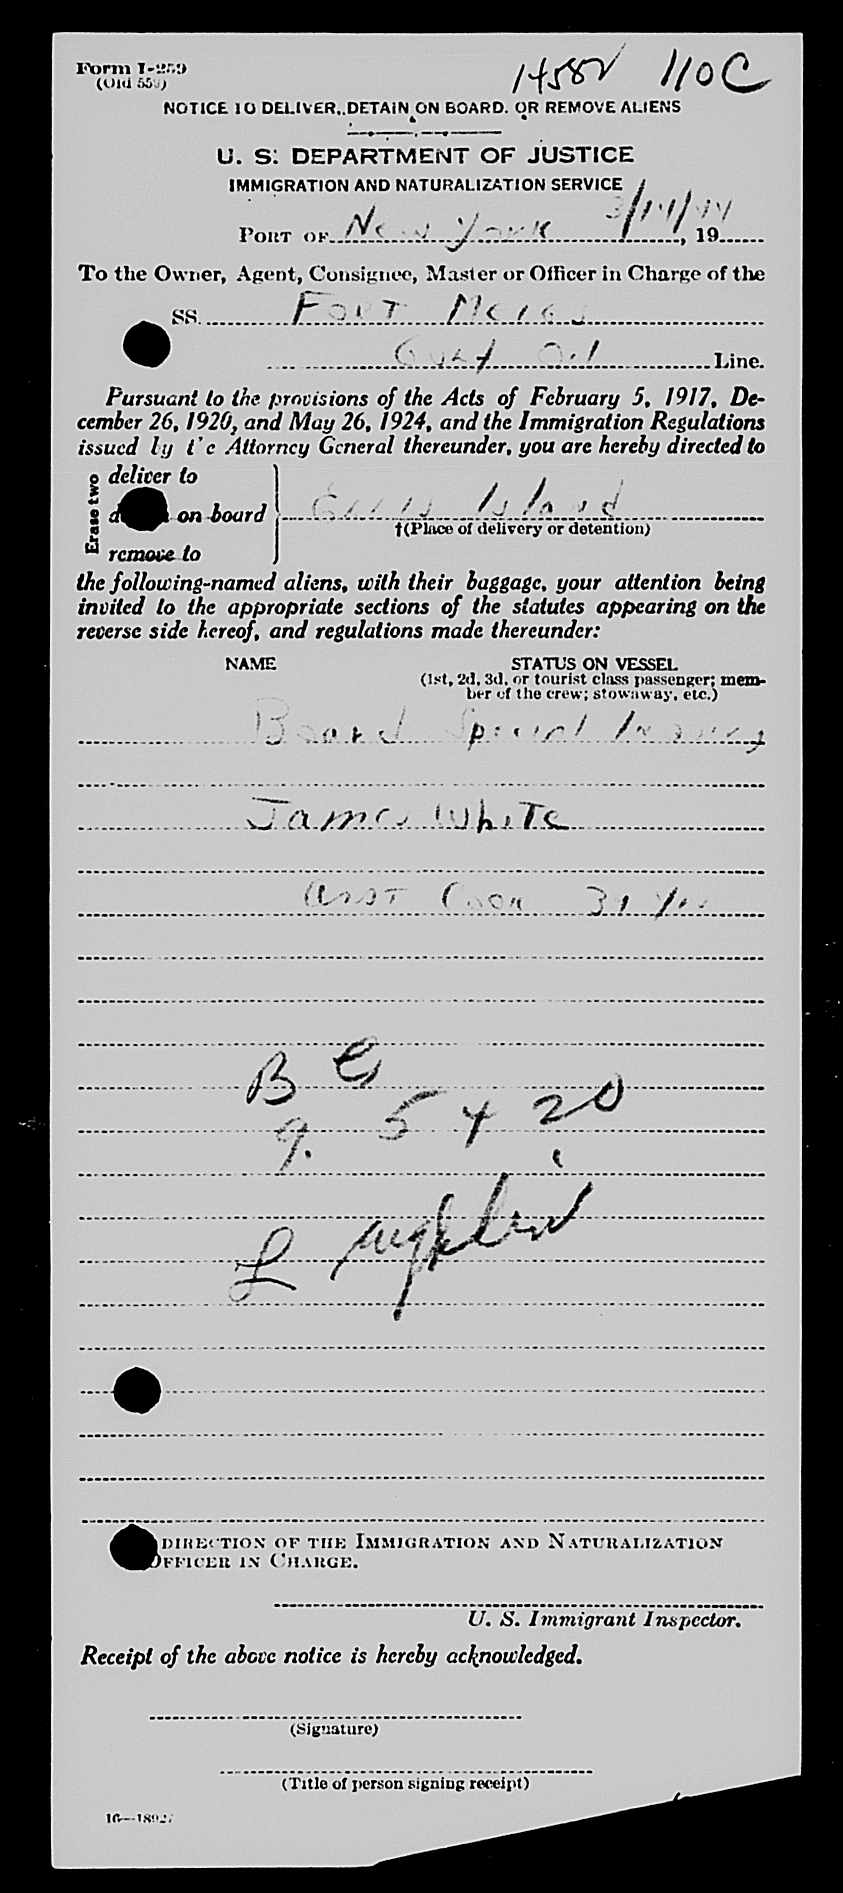 Form I-259
(Old 559)
110C
NOTICE TO DELIVER, DETAIN ON BOARD, OR REMOVE ALIENS
U. S. DEPARTMENT OF JUSTICE
IMMIGRATION AND NATURALIZATION SERVICE
3/14/44
PORT OF New York , 19
To the Owner, Agent, Consignee, Master or Officer in Charge of the
SS. Fort Meigs
Gulf Oil Line.
Pursuant to the provisions of the Acts of February 5, 1917, De-
cember 26, 1920, and May 26, 1924, and the Immigration Regulations
issued by the Attorney General thereunder, you are hereby directed to
Erase two
deliver to
on board
Ellis Island
†(Place of delivery or detention)
remove to
the following-named aliens, with their baggage, your attention being
invited to the appropriate sections of the statutes appearing on the
reverse side hereof, and regulations made thereunder:
NAME STATUS ON VESSEL
(1st, 2d, 3d, or tourist class passenger; mem-
ber of the crew; stowaway, etc.)
Board Special Inquiry
James White
Asst Cook 31
B
9. 5 4 20
DIRECTION OF THE IMMIGRATION AND NATURALIZATION
OFFICER IN CHARGE.
U. S. Immigrant Inspector.
Receipt of the above notice is hereby acknowledged.
(Signature)
(Title of person signing receipt)
16—18927